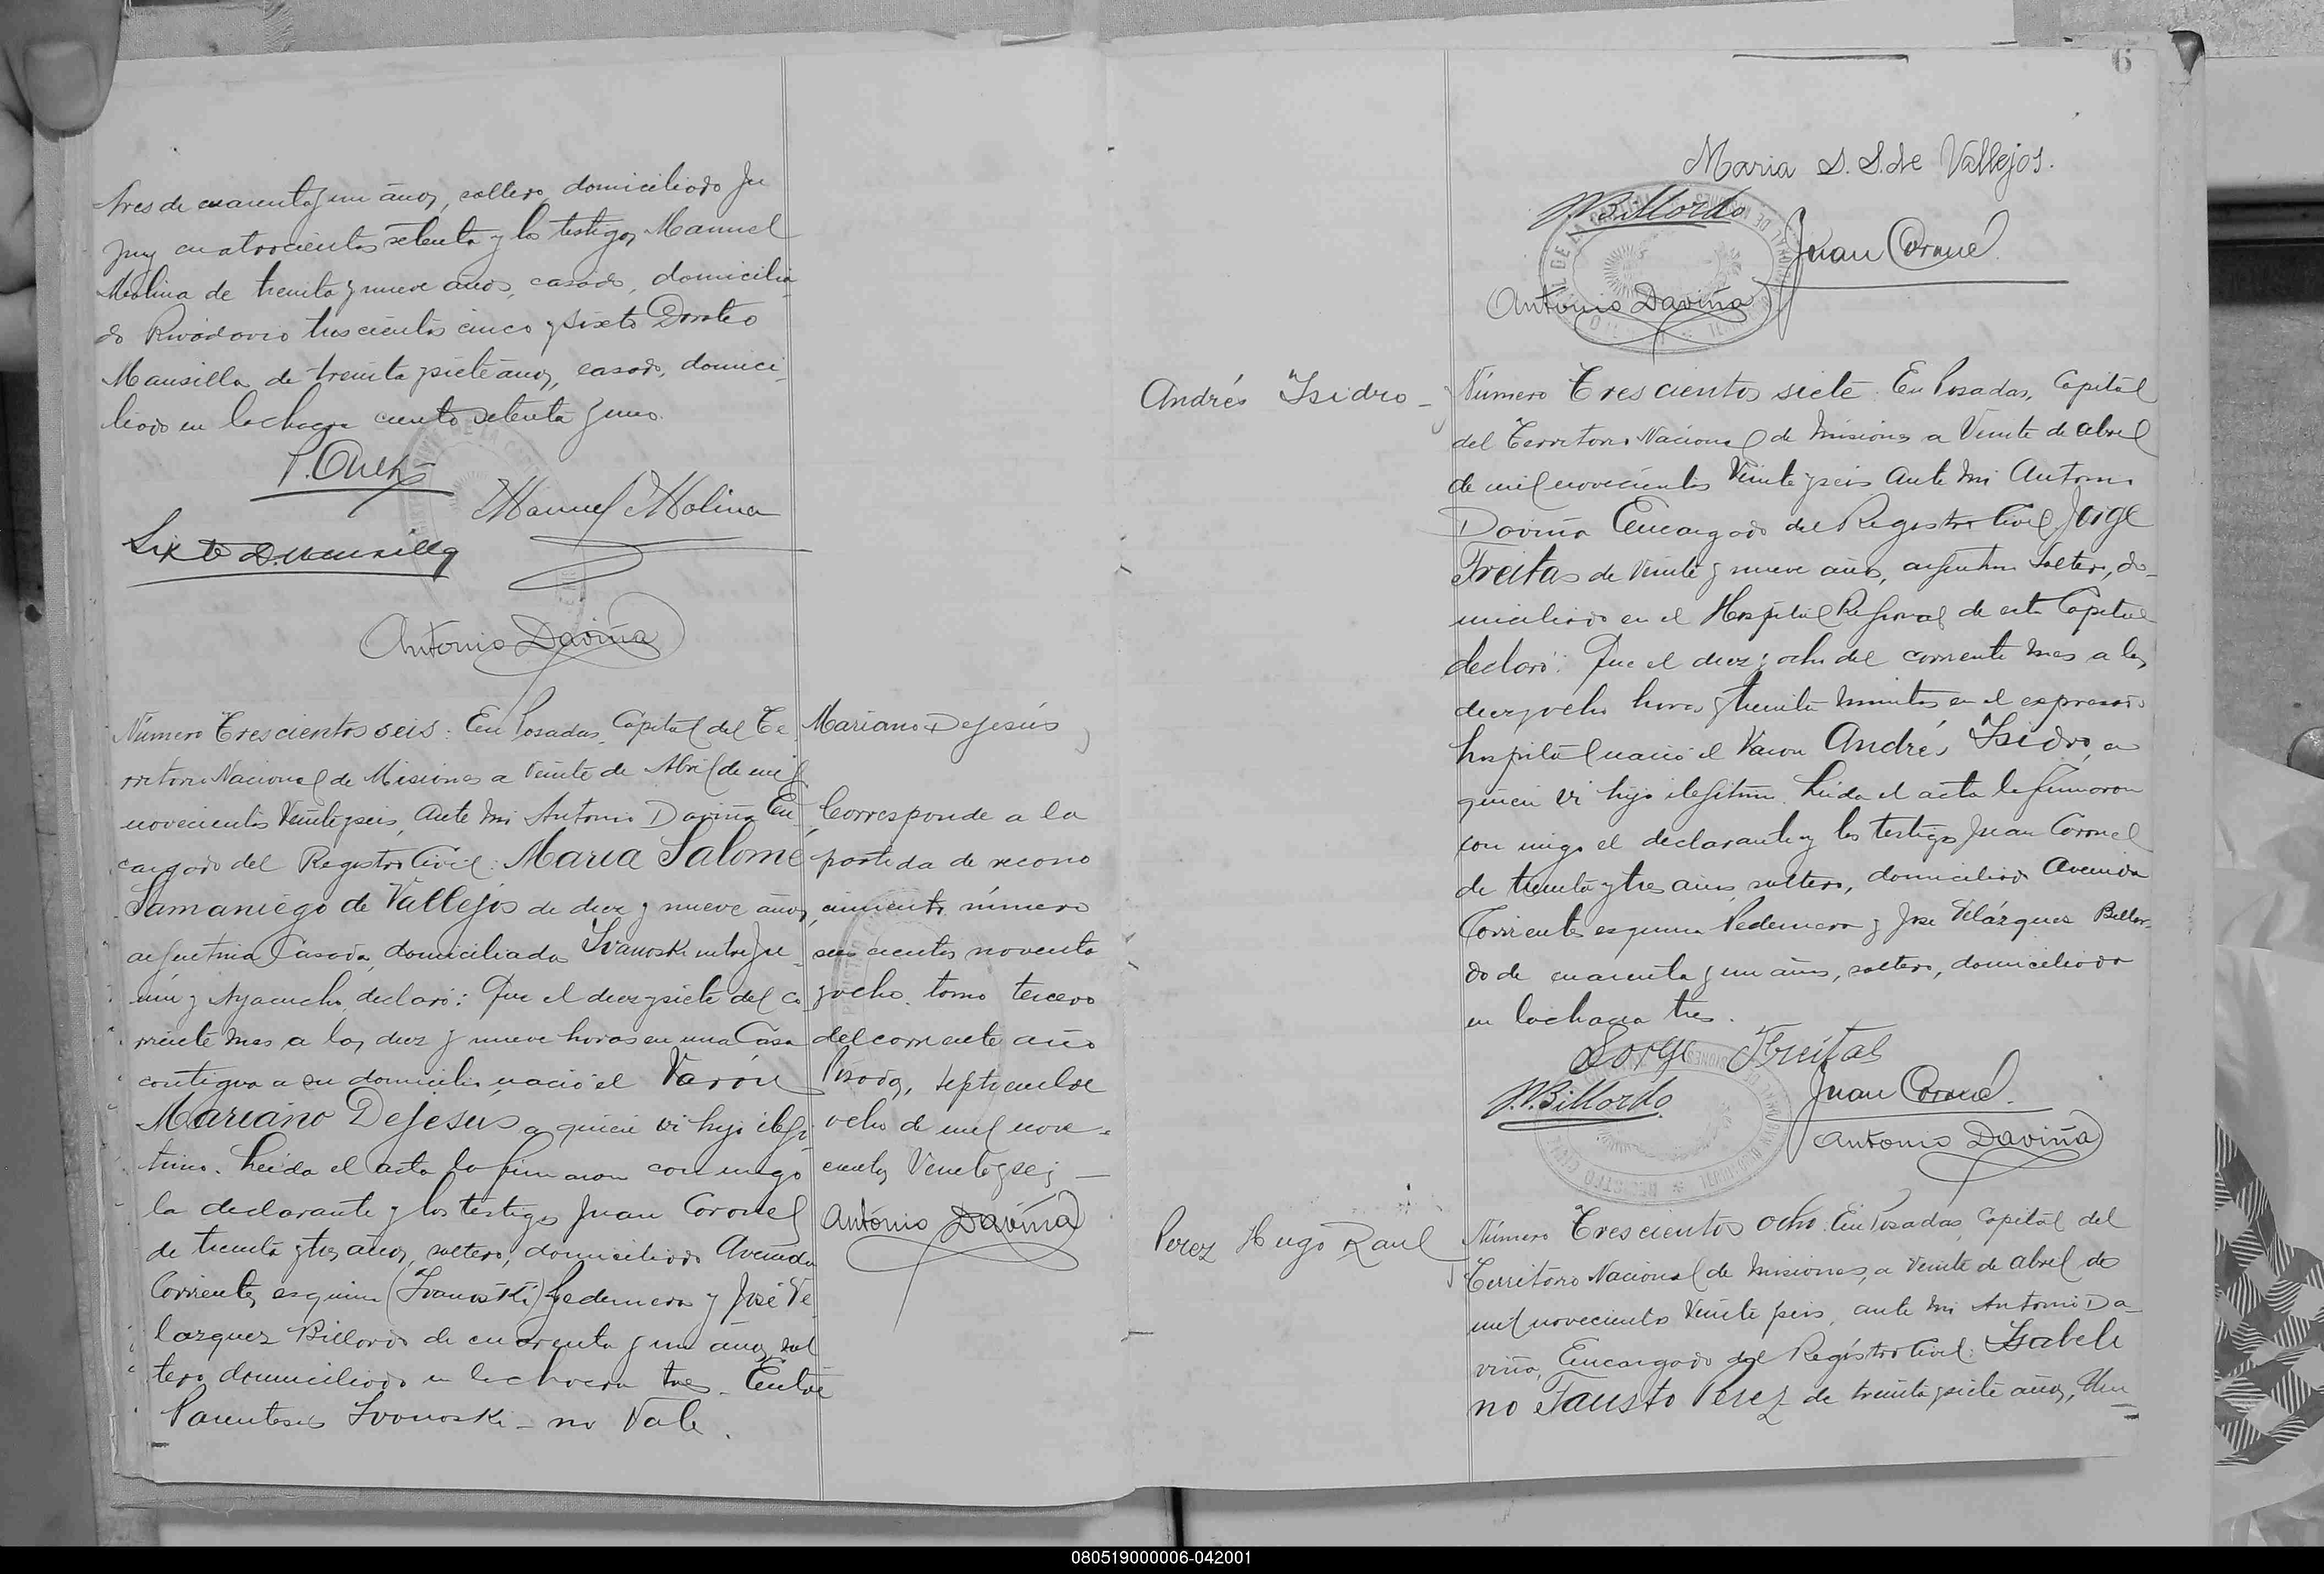 tres de cuarenta y un años, soltero, domiciliado Ju
juy cuatrocientos setenta y los testigos Manuel
Molina de treinta y nueve años, casado, domicilia
do Rivadavia trescientos cinco y Sixto Doroteo
Mansilla de treinta y siete años, casado, domici-
liado en la chacra ciento setenta y uno.
Manuel Molina
Sixto D. Mansilla
Antonio Daviña
Número Trescientos seis: En Posadas, Capital del Te
rritorio Nacional de Misiones a Veinte de Abril de mil
novecientos Veinte y seis, Ante mi Antonio Daviña En-
cargado del Registro Civil: Maria Salomé
Samaniego de Vallejos de diez y nueve años,
argentina Casada, domiciliada Ivanoski entre Ju-
nin y Ayacucho, declaró: Que el diez y siete del co
rriente mes a las diez y nueve horas en una Casa
contigua a su domicilio nació el Varón
Mariano DeJesús a quien vi hijo ilegi
timo. Leida el acta la firmaron con migo
la declarante y los testigos Juan Coronel
de treinta y tres años, soltero, domiciliado Avenida
Corrientes esquina (Ivanoski) Pedernera y José Ve
lazquez Billordo de cuarenta y un años, sol
tero, domiciliado en la chacra tres. Entre
Parentesis Ivanoski - no Vale.
Mariano DeJesús
Corresponde a la
partida de recono
cimiento número
seis cientos noventa
y ocho. tomo tercero
del corriente año
Posadas, septiembre
ocho de mil nove-
cientos Veinte y seis -
Antonio Daviña
6
Maria S. S. de Vallejos.
J. V. Billordo
Juan Coronel
Antonio Daviña
Andrés Isidro -
Número Trescientos siete: En Posadas, Capital
del Territorio Nacional de Misiones a Veinte de abril
de mil novecientos Veinte y seis Ante mi Antonio
Daviña Encargado del Registro Civil, Jorge
Freitas de Veinte y nueve años, argentino Soltero, do-
miciliado en el Hospital Regional de esta Capital
declaró: Que el diez y ocho del corriente mes a las
diez y ocho horas y treinta minutos en el expresado
hospital nació el Varon Andrés Isidro, a
quien vi hijo ilegitimo. Leida el acta la firmaron
con migo el declarante y los testigos Juan Coronel
de treinta y tres años soltero, domiciliado Avenida
Corrientes esquina Pedernera y Jose Velázquez Billor-
do de cuarenta y un años, soltero, domiciliado
en la chacra tres.
Jorge Freitas
J. V. Billordo
Juan Coronel
Antonio Daviña
Perez Hugo Raul
Número Trescientos ocho: En Posadas, Capital del
Territorio Nacional de Misiones, a Veinte de abril de
mil novecientos Veinte y seis, ante mi Antonio Da-
viña, Encargado del Registro Civil: Isabeli
no Fausto Perez de treinta y siete años,
080519000006-042001